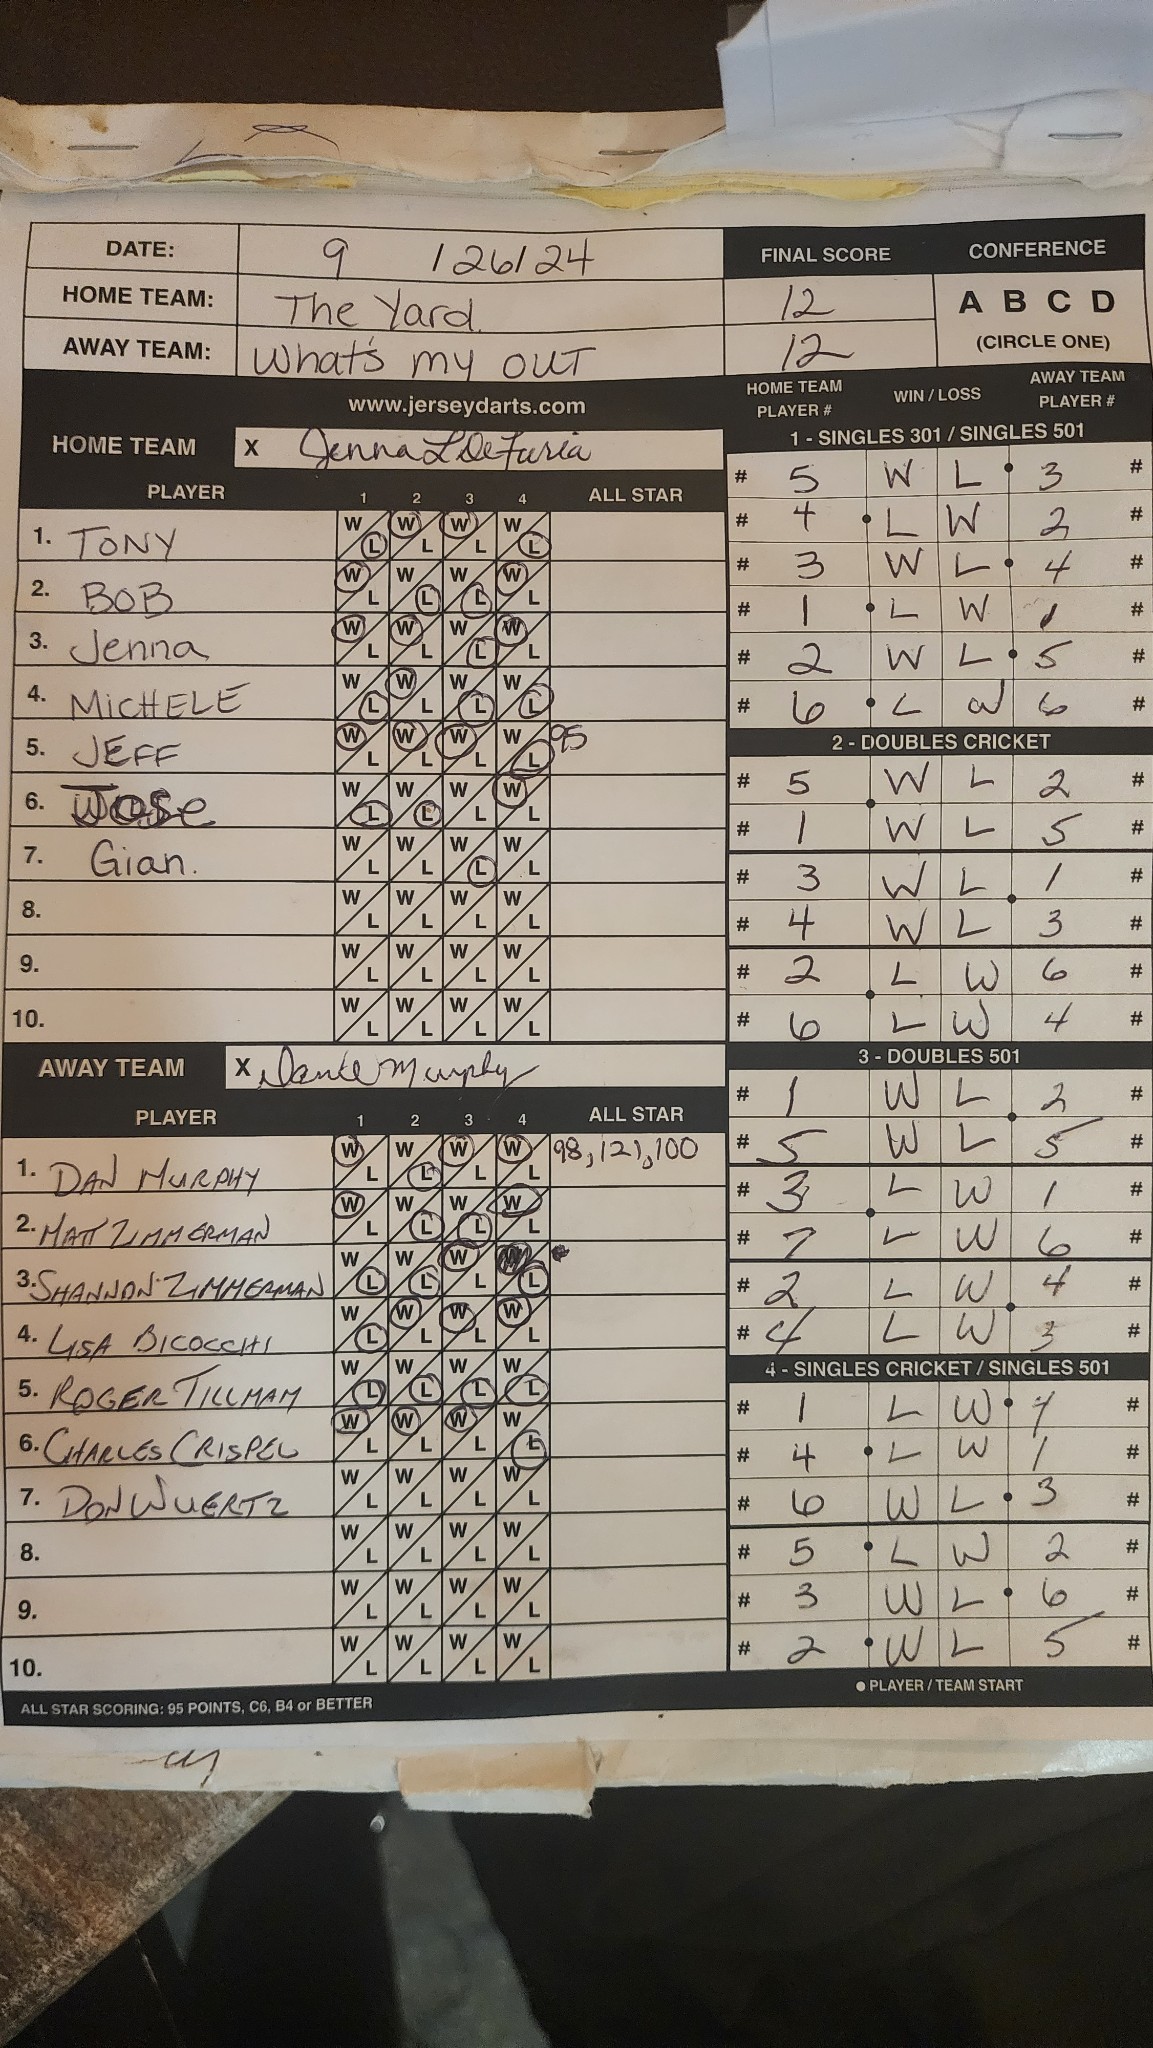 DATE: 9 / 26 / 24 FINAL SCORE CONFERENCE
HOME TEAM: The Yard. 12 A B C D
AWAY TEAM: What's my out 12 (CIRCLE ONE)
www.jerseydarts.com HOME TEAM PLAYER # WIN / LOSS AWAY TEAM PLAYER #
HOME TEAM X Jenna L DeFuria
PLAYER 1 2 3 4 ALL STAR
1. TONY W L W L W L W L
2. BOB W L W L W L W L
3. Jenna W L W L W L W L
4. MICHELE W L W L W L W L
5. JEFF W L W L W L W L 95
6. Jose W L W L W L W L
7. Gian. W L W L W L W L
8. W L W L W L W L
9. W L W L W L W L
10. W L W L W L W L
AWAY TEAM X Murphy
PLAYER 1 2 3 4 ALL STAR
1. DAN MURPHY W L W L W L W L 98, 121, 100
2. MATT ZIMMERMAN W L W L W L W L
3. SHANNON ZIMMERMAN W L W L W L L
4. LISA BICOCCHI W L W L W L W L
5. ROGER TILLMAM W L W L W L W L
6. CHARLES CRISPEL W L W L W L W L
7. DON WUERTZ W L W L W L W L
8. W L W L W L W L
9. W L W L W L W L
10. W L W L W L W L
ALL STAR SCORING: 95 POINTS, C6, B4 or BETTER
1 - SINGLES 301 / SINGLES 501
# 5 W L 3 #
# 4 L W 2 #
# 3 W L 4 #
# 1 L W 1 #
# 2 W L 5 #
# 6 L W 6 #
2 - DOUBLES CRICKET
# 5 W L 2 #
# 1 W L 5 #
# 3 W L 1 #
# 4 W L 3 #
# 2 L W 6 #
# 6 L W 4 #
3 - DOUBLES 501
# 1 W L 2 #
# 5 W L 5 #
# 3 L W 1 #
# 7 L W 6 #
# 2 L W 4 #
# 4 L W 3 #
4 - SINGLES CRICKET / SINGLES 501
# 1 L W 4 #
# 4 L W 1 #
# 6 W L 3 #
# 5 L W 2 #
# 3 W L 6 #
# 2 W L 5 #
PLAYER / TEAM START